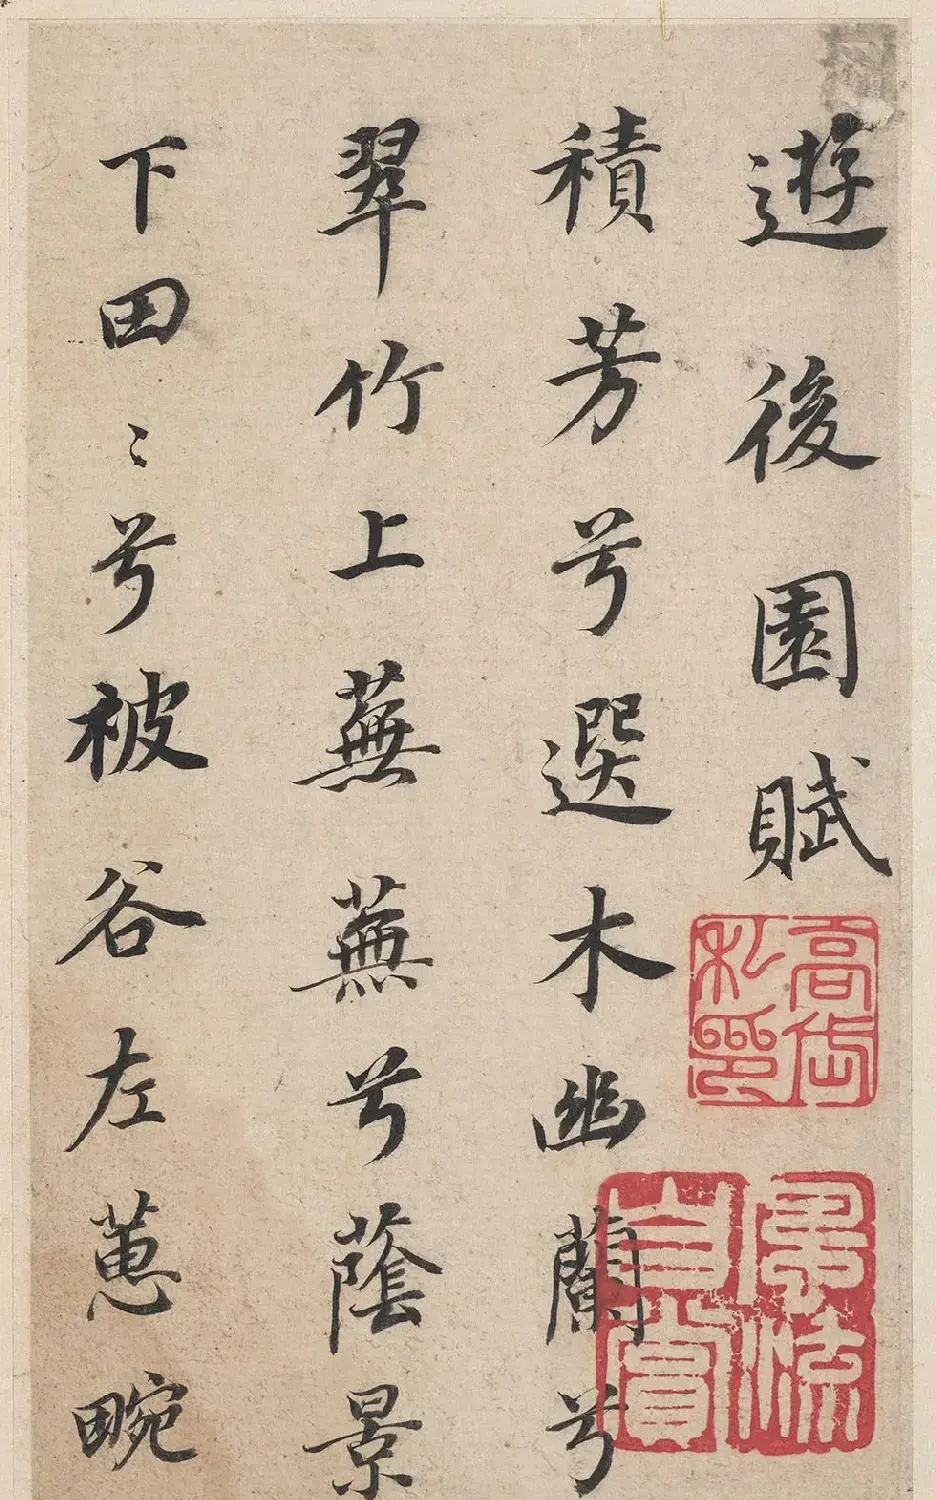 遊後園賦
積芳兮選木幽蘭兮
翠竹上蕪蕪兮蔭景
下田〻兮被谷左蕙畹
高岱私印